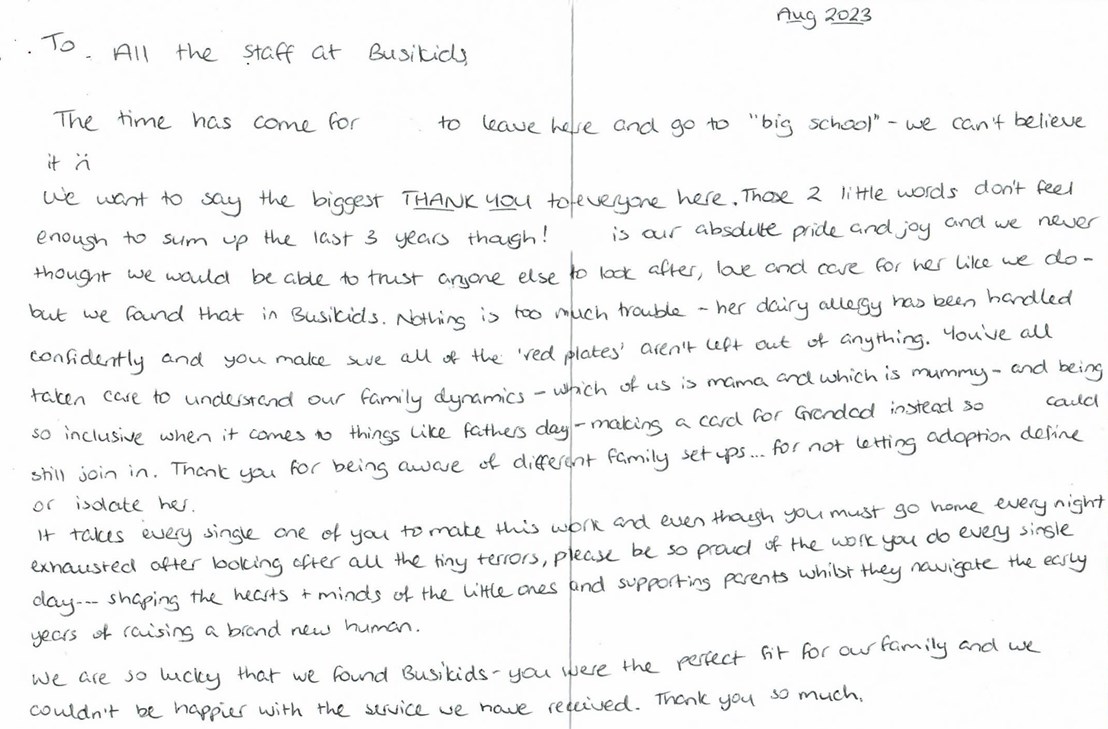 Aug 2023
To. All the staff at Busikids,
The time has come for to leave here and go to "big school" - we can't believe
it :(
We want to say the biggest THANK YOU to everyone here. Those 2 little words don't feel
enough to sum up the last 3 years though! is our absolute pride and joy and we never
thought we would be able to trust anyone else to look after, love and care for her like we do -
but we found that in Busikids. Nothing is too much trouble - her dairy allergy has been handled
confidently and you make sure all of the 'red plates' aren't left out of anything. You've all
taken care to understand our family dynamics - which of us is mama and which is mummy - and being
so inclusive when it comes to things like fathers day - making a card for Grandad instead so could
still join in. Thank you for being aware of different family set ups... for not letting adoption define
or isolate her.
It takes every single one of you to make this work and even though you must go home every night
exhausted after looking after all the tiny terrors, please be so proud of the work you do every single
day--- shaping the hearts + minds of the little ones and supporting parents whilst they navigate the early
years of raising a brand new human.
We are so lucky that we found Busikids - you were the perfect fit for our family and we
couldn't be happier with the service we have received. Thank you so much.